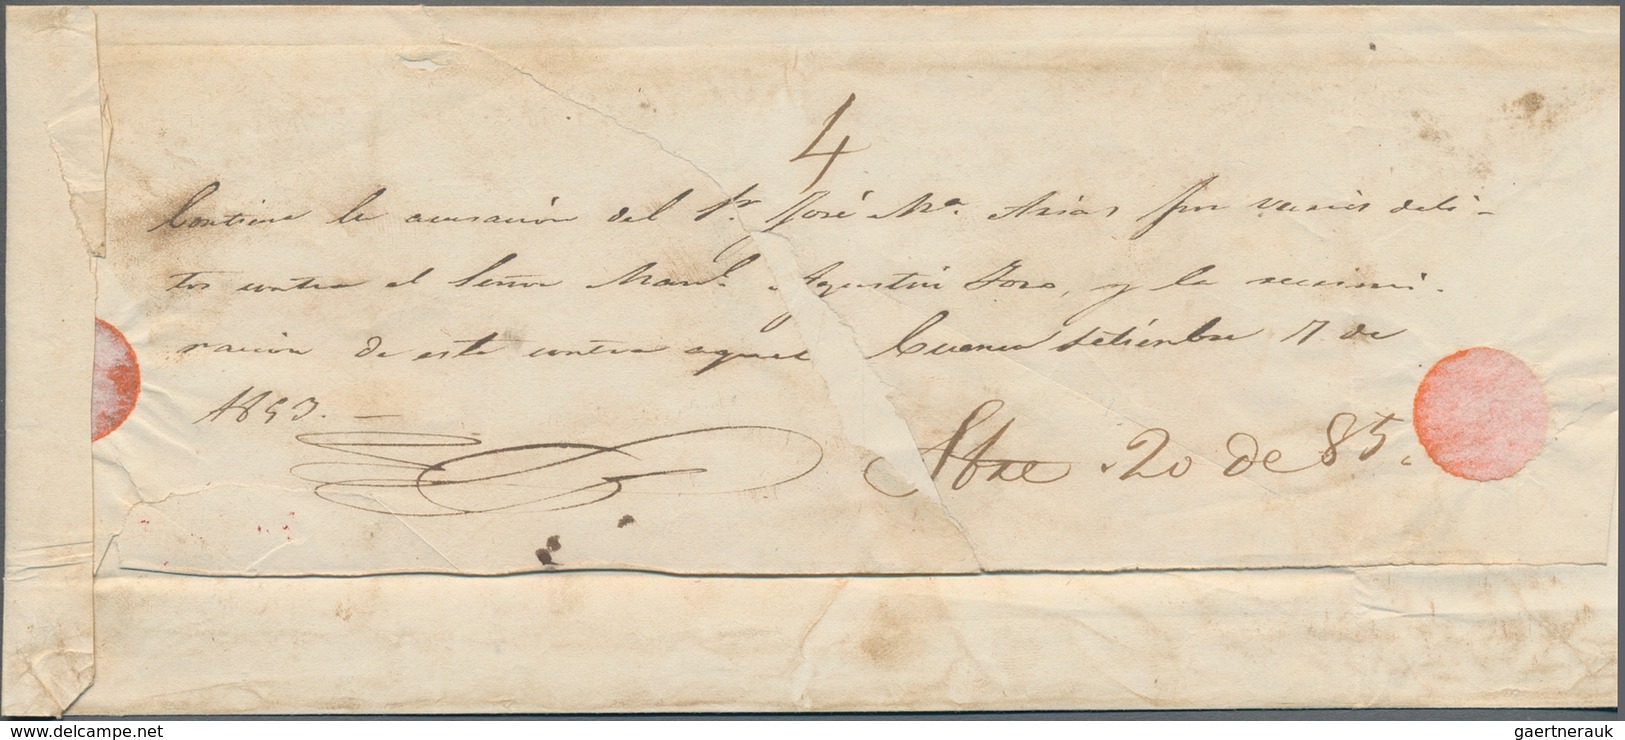 4
Contiene la acusación del Sr. José Ma. Arias por varios deli-
tos contra el Señor Manl. Agustín Toro, y la recrimi-
nación de este contra aquel Cuenca Setiembre 17 de
1853. —
20 de 85
delcampe.net
gaertnerauk